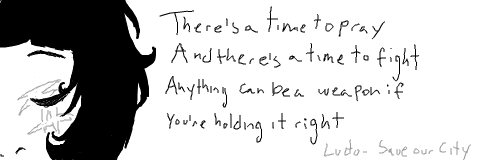 There's a time to pray
And there's a time to fight
Anything can be a weapon if
You're holding it right
Ludo- Save our City